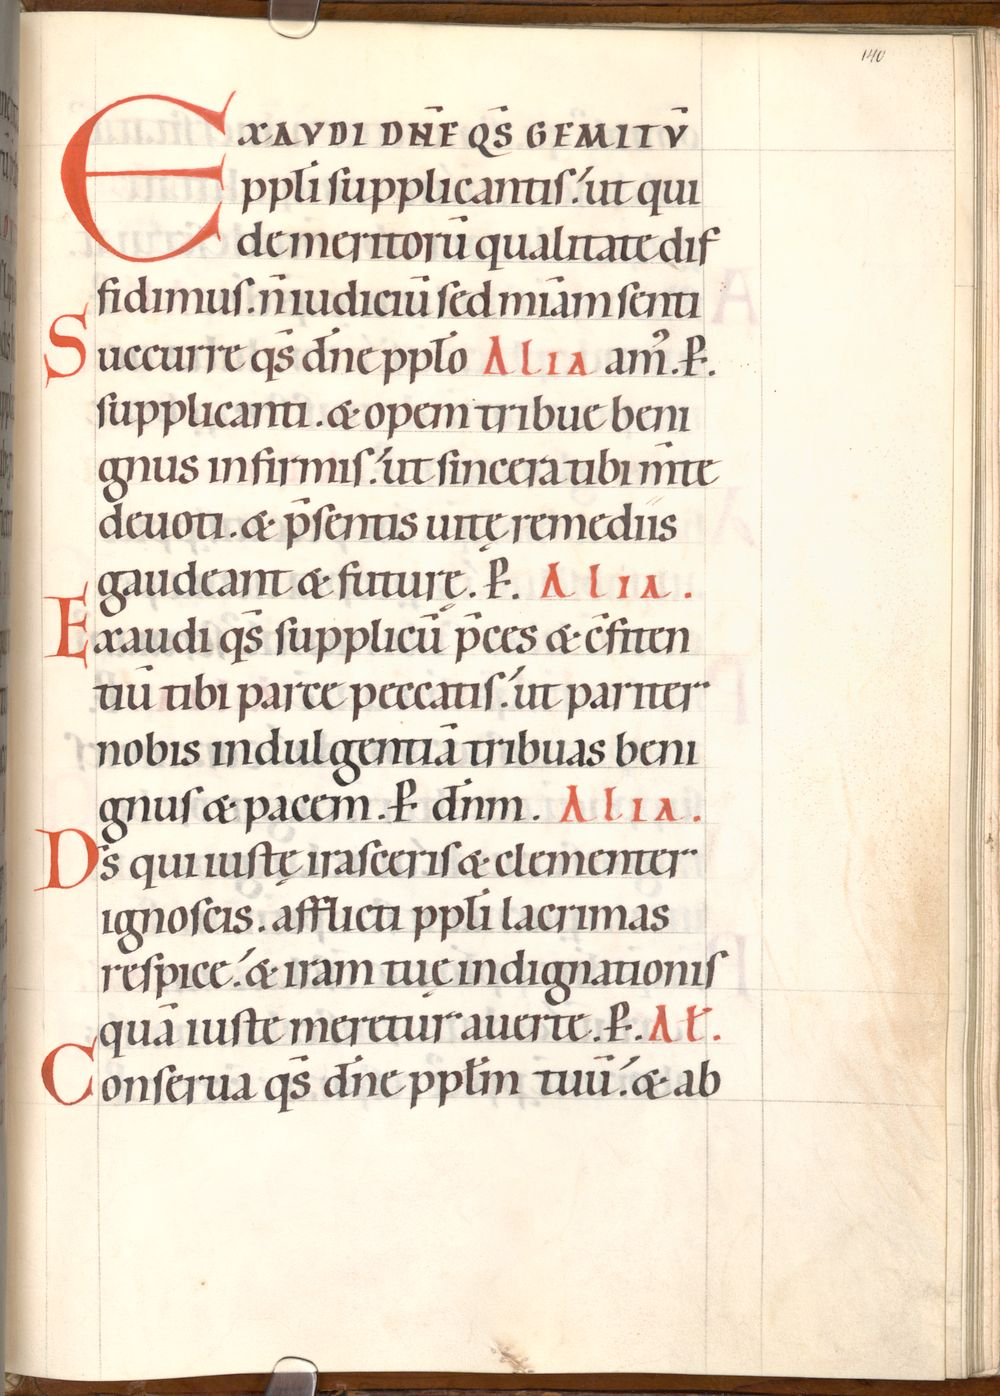 140
EXAVDI DN̄E QS̄ GEMITV̄
ppłi supplicantis. ut qui
de meritorū qualitate dif
fidimus. n̄ iudiciū sed miām senti
Succurre qs̄ dn̄e ppło Alia am̄. P̵.
supplicanti. & opem tribue beni
gnus infirmis. ut sincera tibi m̄te
deuoti. & p̄sentis uitę remediis
gaudeant & futurę. P̵. Alia.
Exaudi qs̄ supplicū p̄ces & c̄fiten
tiū tibi parce peccatis. ut pariter
nobis indulgentiā tribuas beni
gnus & pacem. P̵ dn̄m. Alia.
Ds̄ qui iustę irasceris & clementer
ignoscis. afflicti ppłi lacrimas
respice. & iram tuę indignationis
quā iuste meretur auerte. P̵. Ał.
Conserua qs̄ dn̄e ppłm tuū. & ab